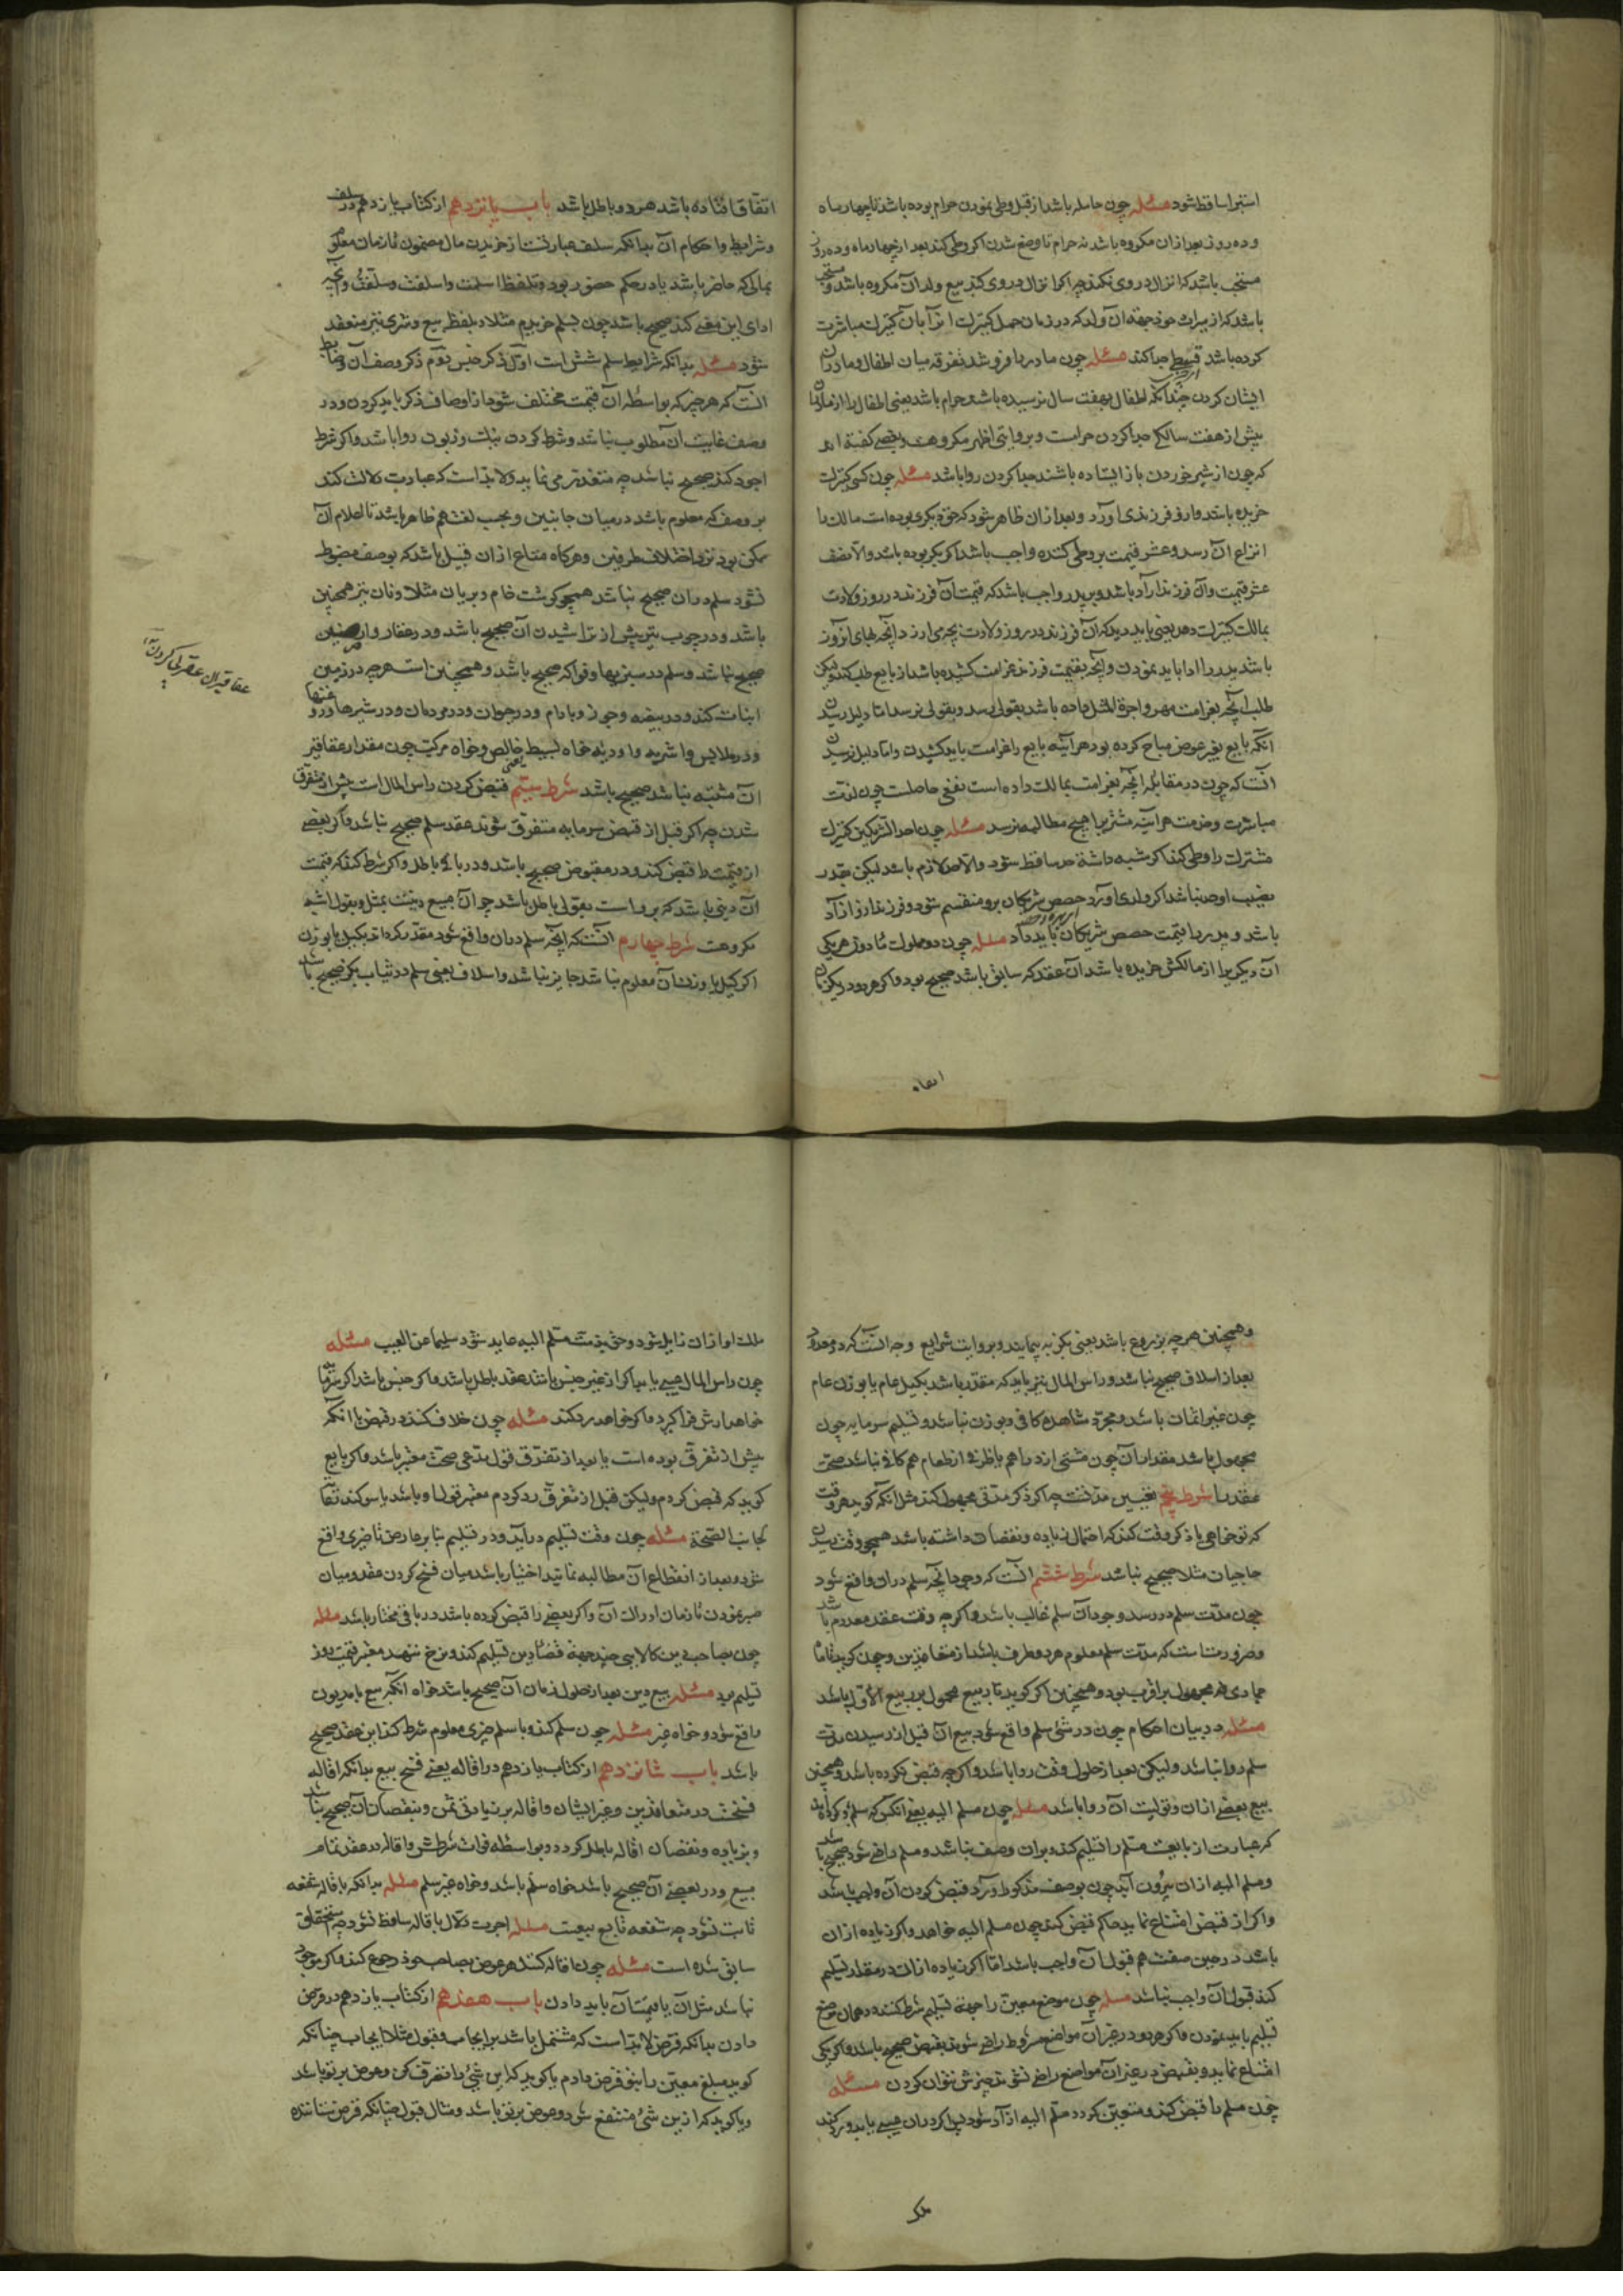 استبرا ساقط شود مسئله چون حامله باشد از قبل وطی نمودن حرام بوده باشد تا چهار ماه
و ده روز بعد ازان مکروه باشد نه حرام تا وضع شدن اکر وطی کند بعد از چهار ماه و ده روز
مستحب باشد که انزال در وی نکند چه اکر انزال در وی کند بیع ولد آن مکروه باشد و مستحب
باشد که از میراث خود جهة آن ولد که در زمان حمل کنیزک
کرده باشد قسطی جدا کند مسئله چون مادر را فروشد تفرقه میان اطفال و مادران
ایشان کردن چندانکه اطفال بهفت سال نرسیده باشند حرام باشد یعنی اطفال را از مادران
پیش از هفت سالکی جدا کردن حرامست و بروایتی اظهر مکروهست و بعضی کفته اند
که چون از شیر خوردن باز ایستاده باشند جدا کردن روا باشد مسئله چون کسی کنیزک
خریده باشد و ازو فرزندی آورد و بعد ازان ظاهر شود که حق دیکری بوده است مالک را
انتزاع آن رسد و عشر قیمت بر وطی کننده واجب باشد اکر بکر بوده باشد والا نصف
عشر قیمت و آن فرزند آزاد باشد و بر پدر واجب باشد که قیمت آن فرزند در روز ولادت
بمالک کنیزک دهد یعنی باید دید که آن فرزند در روز ولادت بچه می ارزد انچه بهای آنروز
باشد پدر را ادا باید نمودن و انچه بقیمت فرزند غرامت کشیده باشد از بایع طلب کند ولیکن
طلب آنچه بغرامت مهر و اجرة المثل داده باشد بقولی رسد و بقولی نرسد اما دلیل رسیدن
آنکه بایع بغیر عوض مباح کرده بود هر آینه بایع را غرامت باید کشیدن و اما دلیل نرسیدن
آنست که چون در مقابل انچه بغرامت بمالک داده است نفعی حاصلست چون لذت
مباشرت و خدمت هر آینه مشتری را هیچ مطالبه نرسد مسئله چون احد الشریکین کنیزک
مشترک را وطی کند اکر شبهه داشته حد ساقط شود والا حد لازم باشد لیکن بقدر
نصیب او حد نباشد اکر ولدی آورد حصص شریکان برو منقسم شود و فرزند ازو آزاد
باشد و پدر را قیمت حصص شریکان باید داد مسئله چون دو مملوک مأذون هر یکی
آن دیکر را از مالکش خریده باشد آن عقد که سابق باشد صحیح بود و اکر هر دو در یک زمان
اتفاق
اتفاق افتاده باشد هر دو باطل باشد باب پانزدهم از کتاب یازدهم در سلف
و شرایط و احکام آن بدانکه سلف عبارتست از خریدن مال مضمون تا زمان معلوم
بمالی که حاضر باشد یا در حکم حضور بود و تلفظ اسلمت و اسلفت و سلفت و آنچه
ادای این معنی کند صحیح باشد چون بسلم خریدم مثلا و بلفظ بیع و شری نیز منعقد
شود مسئله بدانکه شرایط سلم شش است اول ذکر جنس دوم ذکر وصف آن و ضابط
آنست که هر چیز که بواسطه آن قیمت مختلف شود از اوصاف ذکر باید کردن و در
وصف غایت آن مطلوب نباشد و شرط کردن نیک و زبون روا باشد و اکر شرط
اجود کند صحیح نباشد چه متعذر می نماید و لابد است که عبارت دلالت کند
بر وصف که معلوم باشد در میان جانبین و بحسب لغت هم ظاهر باشد تا اعلام آن
ممکن بود نزد اختلاف طرفین و هر کاه متاع از ان قبیل باشد که بوصف مضبوط
نشود سلم دران صحیح نباشد همچو کوشت خام و بریان مثلا و نان نیز همچنین
باشد و در چوب تیر پیش از تراشیدن آن صحیح باشد و در عقار و ارضین
صحیح نباشد و سلم در سبزیها و فواکه صحیح باشد و همچنین است هر چه در زمین
انبات کند و در بیضه و جوز و بادام و در حیوان و در مردمان و در شیرها و روغنها
و در ملابس و اشربه و ادویه خواه بسیط خالص و خواه مرکب چون مقدار عقاقیر
آن مشتبه نباشد صحیح باشد شرط سیّم یعنی قبض کردن راس المال است پیش از متفرق
شدن چه اکر قبل از قبض سرمایه متفرق شوند عقد سلم صحیح نباشد و اکر بعضی
از قیمت را قبض کند در مقبوض صحیح باشد و در باقی باطل و اکر شرط کند که قیمت
آن دینی باشد که برو است بقولی باطل باشد چو آن بیع دینست بمثل و بقول اشبه
مکروهست شرط چهارم آنست که آنچه سلم دران واقع شود مقدر کرداند بکیل یا بوزن
اکر کیل یا وزن آن معلوم نباشد جایز نباشد و اسلاف یعنی سلم در ثیاب بکز صحیح باشد
عقاقیر
و همچنین هر چه بزروع باشد یعنی بکز به پیمایند و بروایت شرایع وجه آنست که در معدود
بعد از اسلاف صحیح نباشد و راس المال نیز باید که مقدر باشد بکیل عام یا بوزن عام
چون غیر اثمان باشد و مجرد مشاهده کافی و بوزن نباشد و تسلیم سرمایه چون
مجهول باشد مقدار آن چون مشتی از دراهم یا ظرفی از طعام هم کافی نباشد صحت
عقد را شرط پنجم تعیین مدتست چه اکر ذکر مدتی مجهول کند مثل آنکه کوید هر وقت
که تو خواهی یا ذکر وقت کند که احتمال زیاده و نقصان داشته باشد همچو وقت رسیدن
حاجیان مثلا صحیح نباشد شرط ششم آنست که وجود آنچه سلم دران واقع شود
چون مدت سلم در رسد وجود آن سلم غالب باشد و اکر چه وقت عقد معدوم باشد
و ضرورتست که مدت سلم معلوم هر دو طرف باشد از متعاقدین و چون کوید تا ماه
جمادی بر اقرب بود و همچنین اکر کوید تا ربیع محمول بر ربیع الاول باشد
مسئله در بیان احکام چون در شئ سلم واقع شود بیع آن قبل از رسیدن مدت
سلم روا نباشد ولیکن بعد از حلول وقت روا باشد و اکر چه قبض نکرده باشد و همچنین
بیع بعضی از ان و تولیت آن روا باشد مسئله چون مسلم الیه یعنی آنکس که سلم
که عبارت از بایعست مسلم را تسلیم کند و بران وصف نباشد و مسلم راضی شود صحیح باشد
و مسلم الیه ازان بیرون آید چون بوصف مذکور در آرد قبض کردن آن واجب باشد
و اکر از قبض امتناع نماید حاکم قبض کند چون مسلم الیه خواهد و اکر زیاده ازان
باشد در حین صفت هم قبول آن واجب باشد اما اکر زیاده از ان در مقدار تسلیم
کند قبول آن واجب نباشد مسئله چون موضع معین را جهة تسلیم شرط کنند در همان موضع
تسلیم باید نمودن و اکر هر دو در غیر آن مواضع مشروط راضی شوند بقبض صحیح باشد و اکر یکی
امتناع نماید و بقبض در غیر آن مواضع راضی نشود نتوان کردن مسئله
چون مسلم را قبض کند و متعین کردد مسلم الیه ازاد شود پس اکر دران عیبی یابد و رد کند
ملک
ملک او ازان زایل شود و حق بذمت مسلم الیه عاید شود سلیما عن العیب مسئله
چون راس المال عیبی یابد اکر از غیر جنس باشد عقد باطل باشد و اکر جنس باشد اکر
خواهد ارش فرا کیرد و اکر خواهد رد کند مسئله چون خلاف کنند در قبض با آنکه
پیش از تفرق بوده است یا بعد از تفرق قول مدعی صحت معتبر باشد و اکر بایع
کوید که قبض کردم ولیکن قبل از تفرق رد کردم معتبر قول او باشد با سوکند
بجانب الصحة مسئله چون وقت تسلیم در آید و در تسلیم بنا بر عارض تاخیری واقع
شود و بعد از انقطاع آن مطالبه نماید اختیار باشد میان فسخ کردن عقد و میان
صبر نمودن تا زمان ادراک آن و اکر بعضی را قبض کرده باشد در باقی مختار باشد مسئله
چون بصاحب دین کالایی چند جهة قضاء دین تسلیم کند و نرخ ننهد معتبر قیمت روز
تسلیم بود مسئله بیع دین بعد از حلول زمان آن صحیح باشد خواه آنکه بیع با مدیون
واقع شود و خواه غیر مسئله چون سلم کند و با سلم چیزی معلوم شرط کند این عقد صحیح
باشد باب شانزدهم از کتاب یازدهم در اقاله یعنی فسخ بیع بدانکه اقاله
فسخست در متعاقدین و غیر ایشان و اقاله بر زیادتی ثمن و بنقصان آن صحیح نباشد
و بزیاده و نقصان اقاله باطل کردد بواسطه فوات شرطش و اقاله در عقد تمام
مبیع و در بعضی آن صحیح باشد خواه سلم باشد و خواه غیر سلم مسئله بدانکه باقاله شفعه
ثابت نشود چه شفعه تابع بیعست مسئله اجرت دلال باقاله ساقط نشود
سابق شده است مسئله چون اقاله کنند هر عوض بصاحب خود رجوع کند و اکر موجود
نباشد مثل آن یا قیمت آن باید دادن باب هفدهم از کتاب یازدهم در قرض
دادن بدانکه قرض لابد است که مشتمل باشد بر ایجاب و قبول مثلا ایجاب چنانکه
کوید مبلغ معین را بتو قرض دادم یا کوید که این شئ را تصرف کن و عوض بر تو باشد
و یا کوید که ازین شئ منتفع شو و عوض بر تو باشد و مثال قبول چنانکه قرض ستاننده